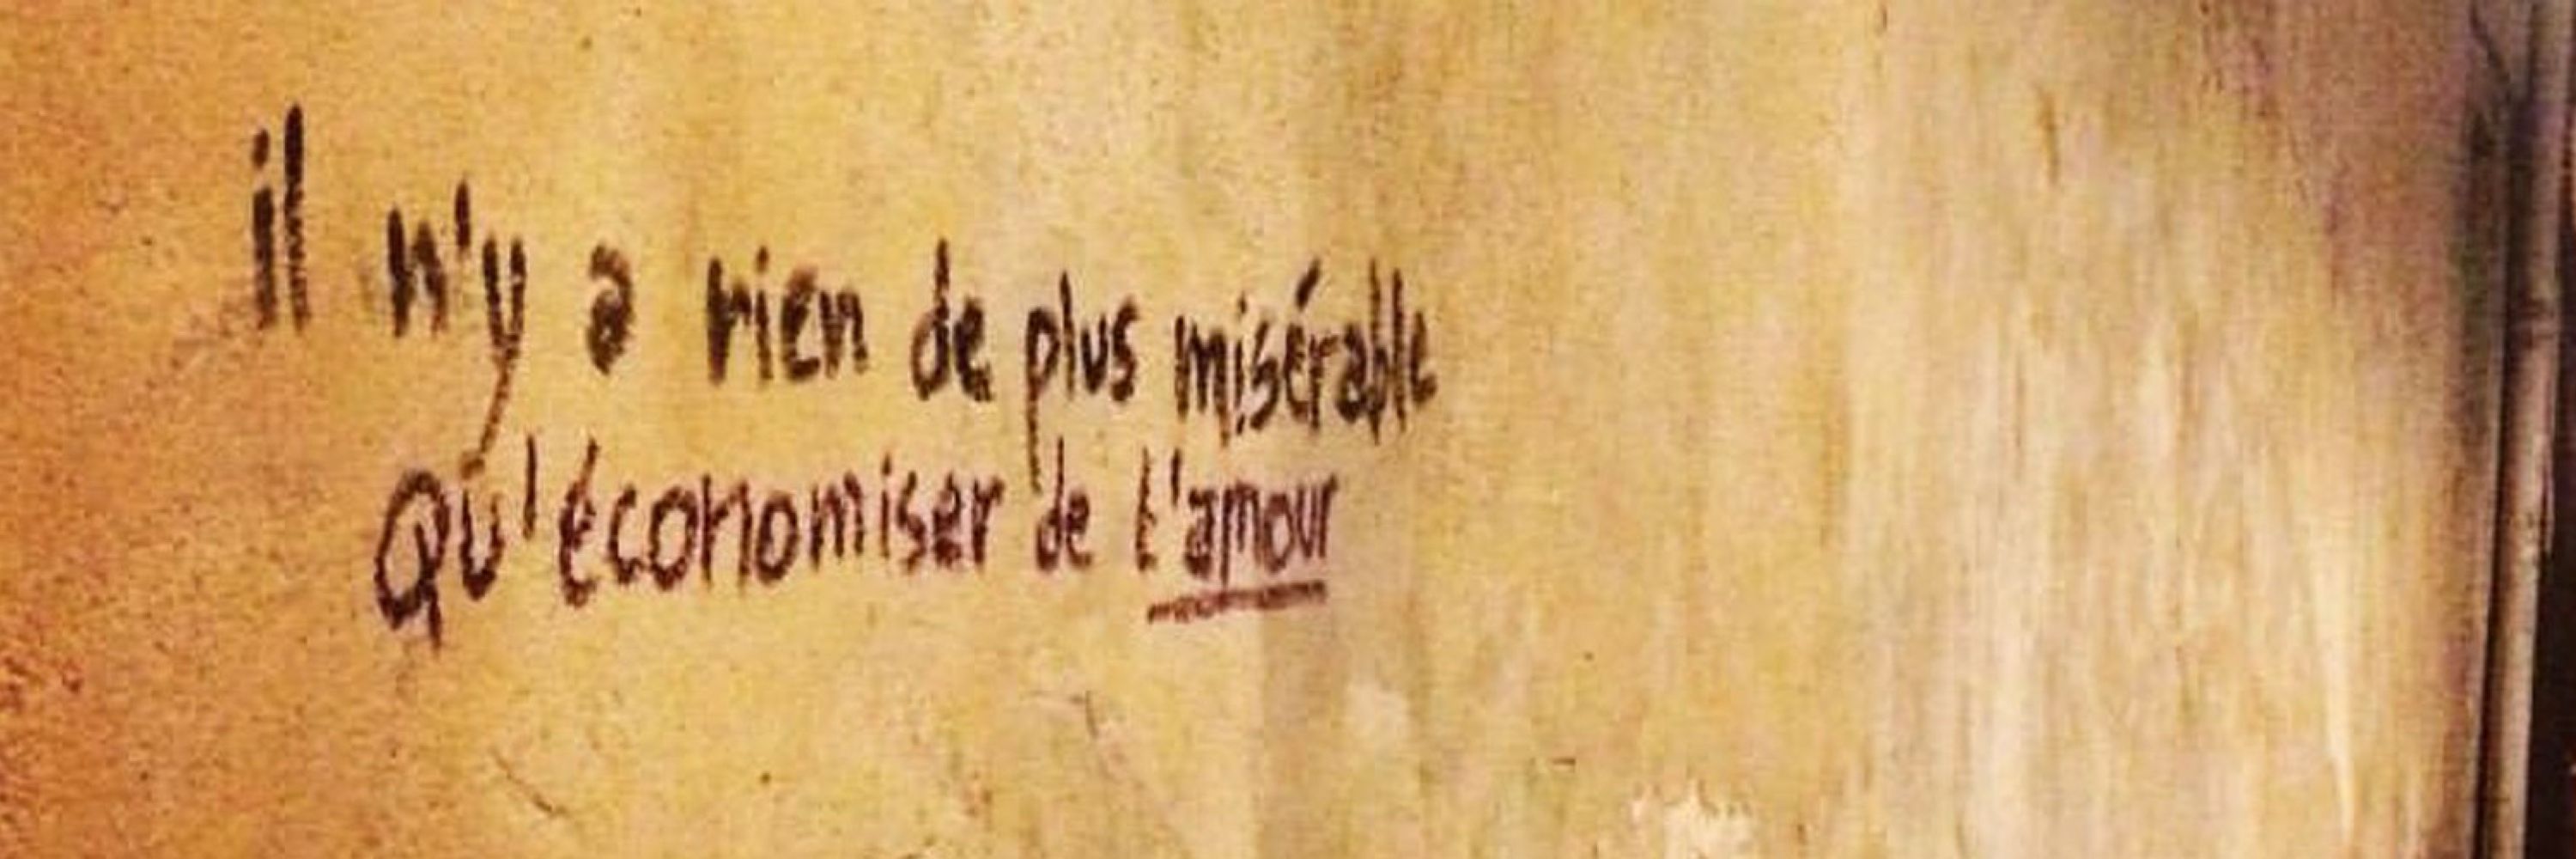 il n'y a rien de plus misérable
Qu'économiser de l'amour